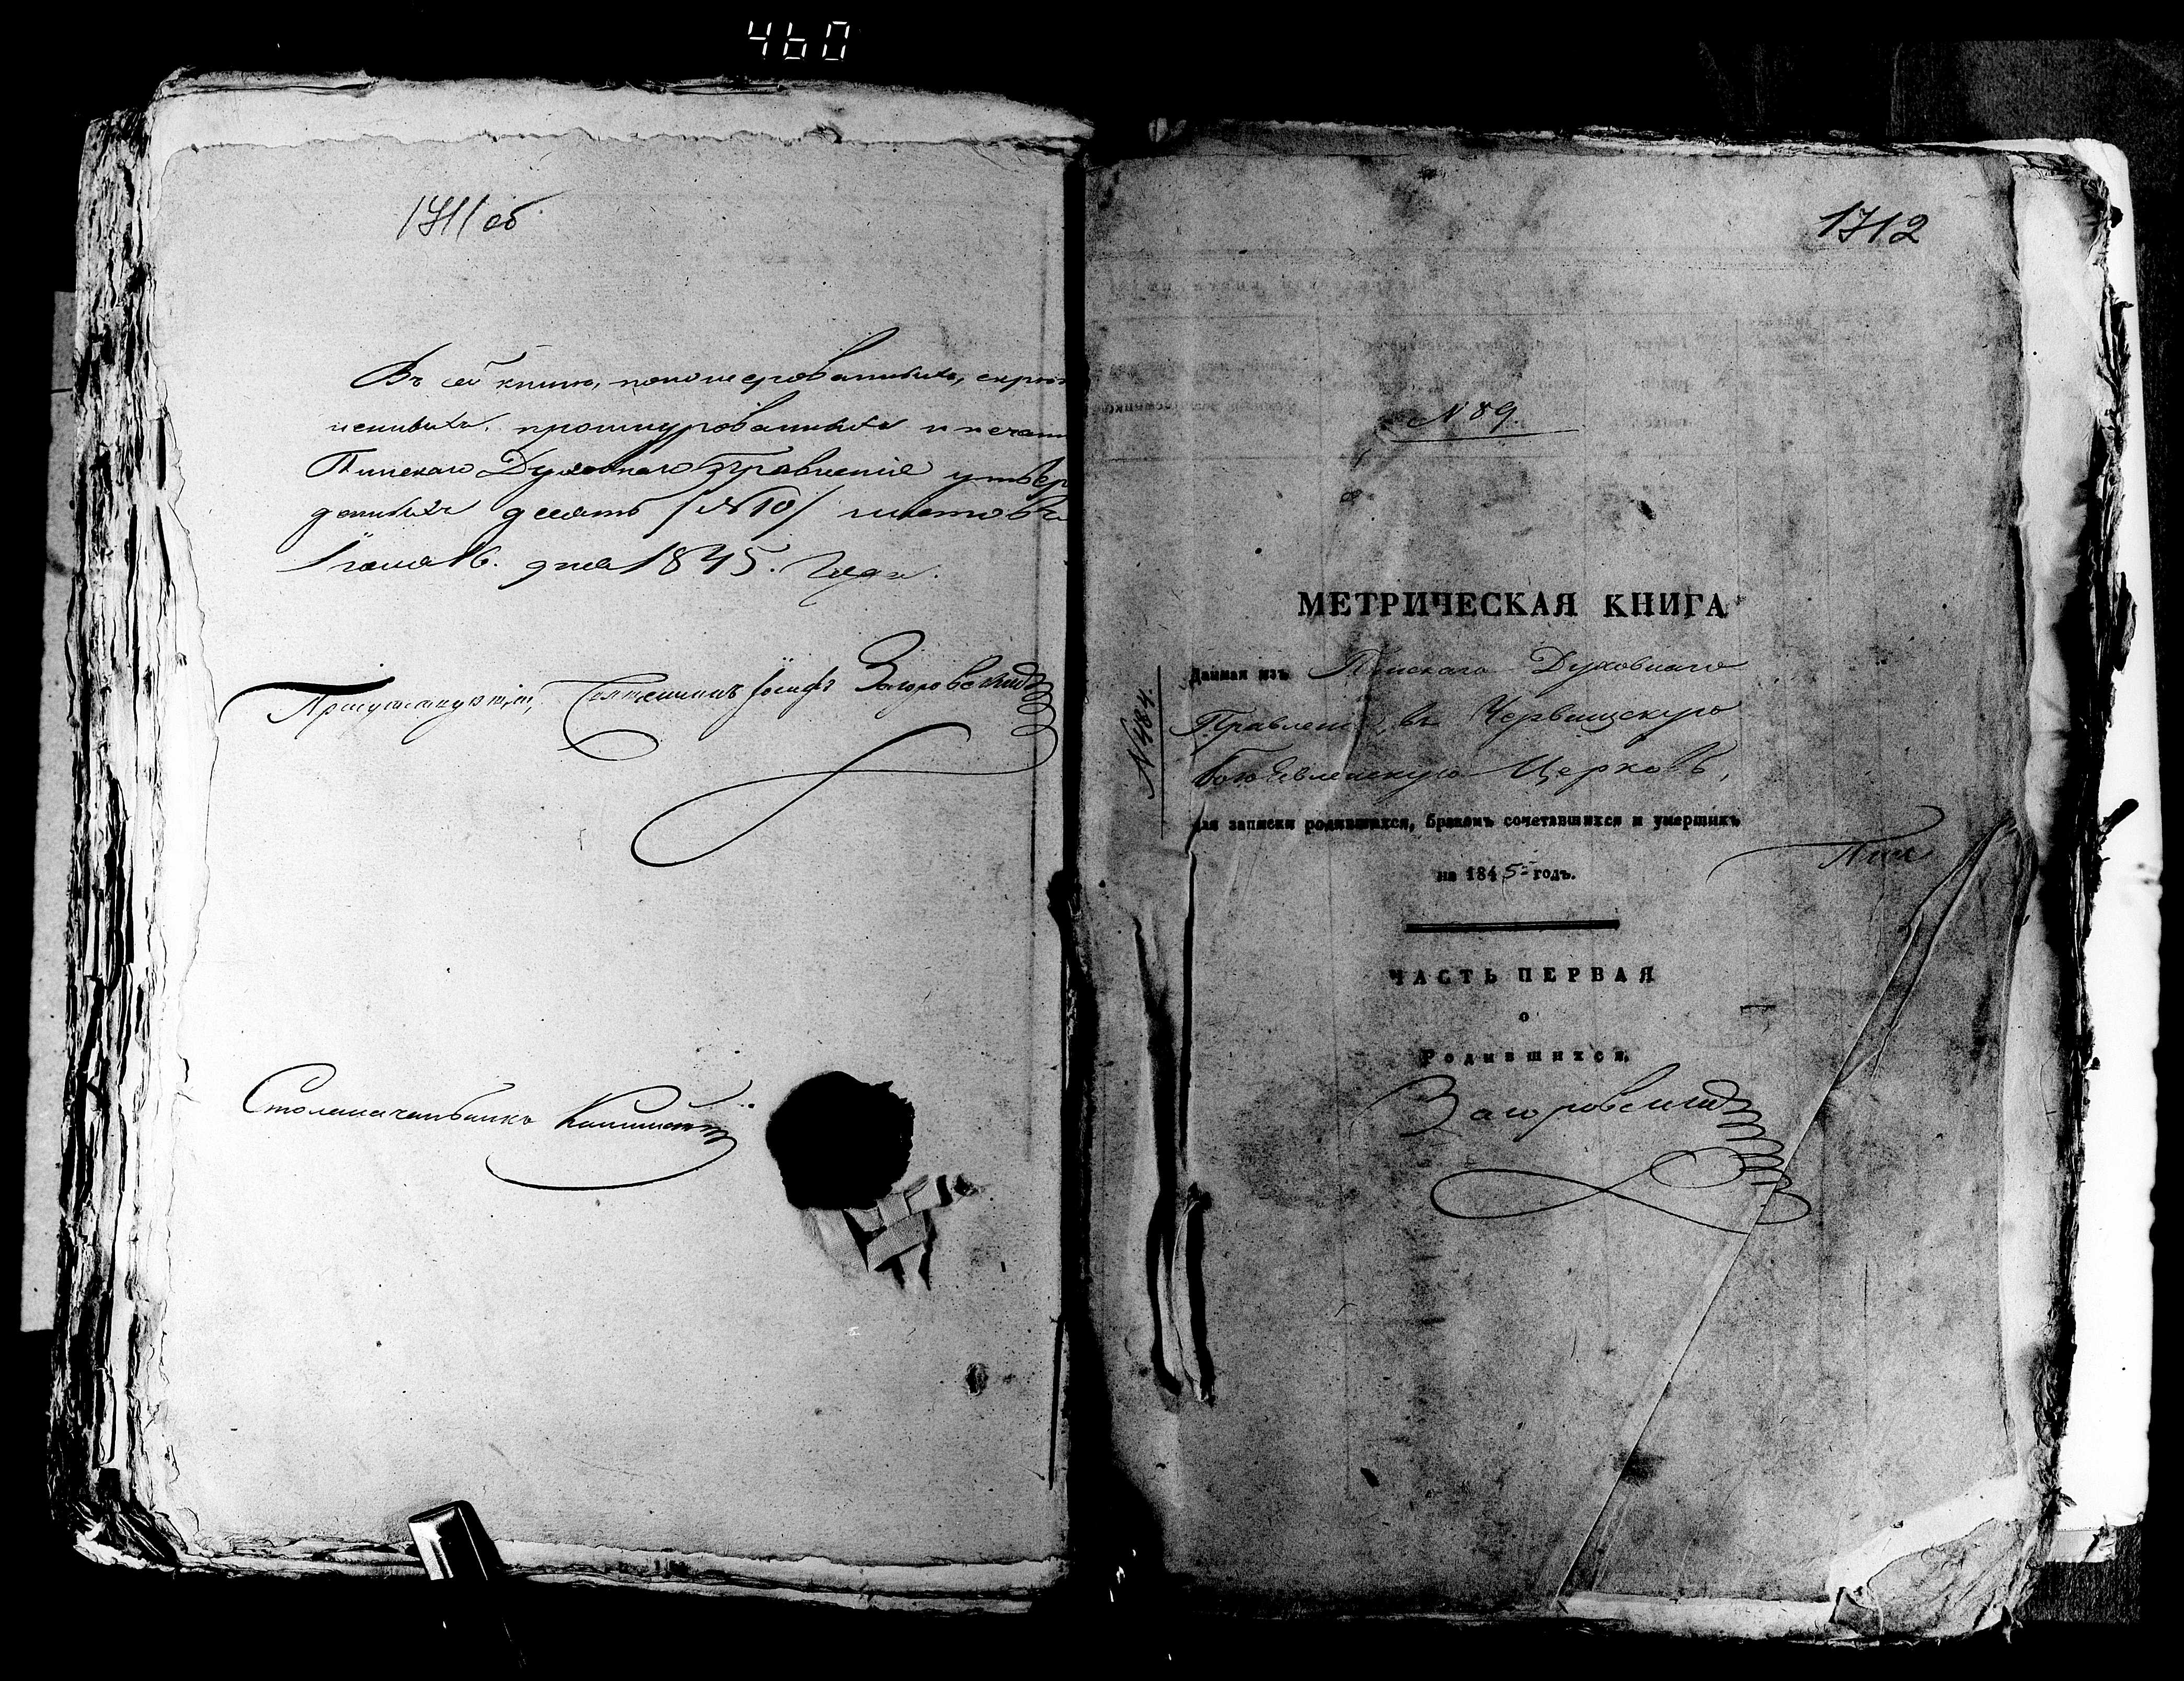 460
1711 об
Въ сей книги, пономерованныхъ, скрѣп
ленныхъ, прошнурованныхъ и печатью
Пинскаго Духовнаго Правленія утвер
денныхъ десять /№ 10/ листовъ
16. дня 1845. Года.
Присутствующій, Священникъ Іосифъ Загоровскій
Столоначальникъ
1712
№ 89.
МЕТРИЧЕСКАЯ КНИГА
Данная изъ Пинскаго Духовнаго
№ 484.
Правленія, въ Червищскую
Богоявленскую Церковь,
для записки родившихся, бракомъ сочетавшихся и умершихъ
Пинс
на 1845 годъ.
ЧАСТЬ ПЕРВАЯ
о
Родившихся.
Загоровскій